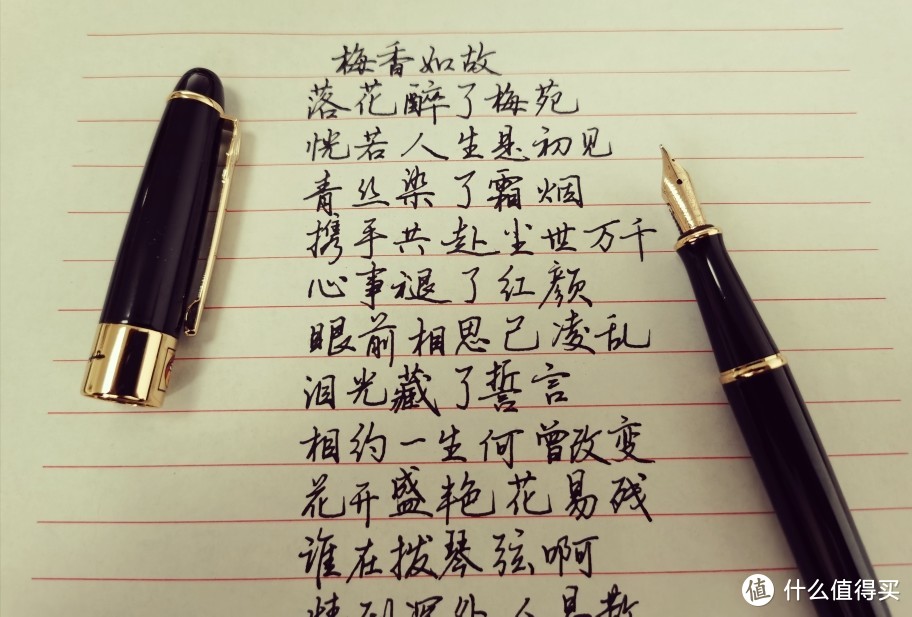 梅香如故
落花醉了梅苑
恍若人生是初见
青丝染了霜烟
携手共赴尘世万千
心事褪了红颜
眼前相思已凌乱
泪光藏了誓言
相约一生何曾改变
花开盛艳花易残
谁在拨琴弦啊
情到深处人易散
值 什么值得买